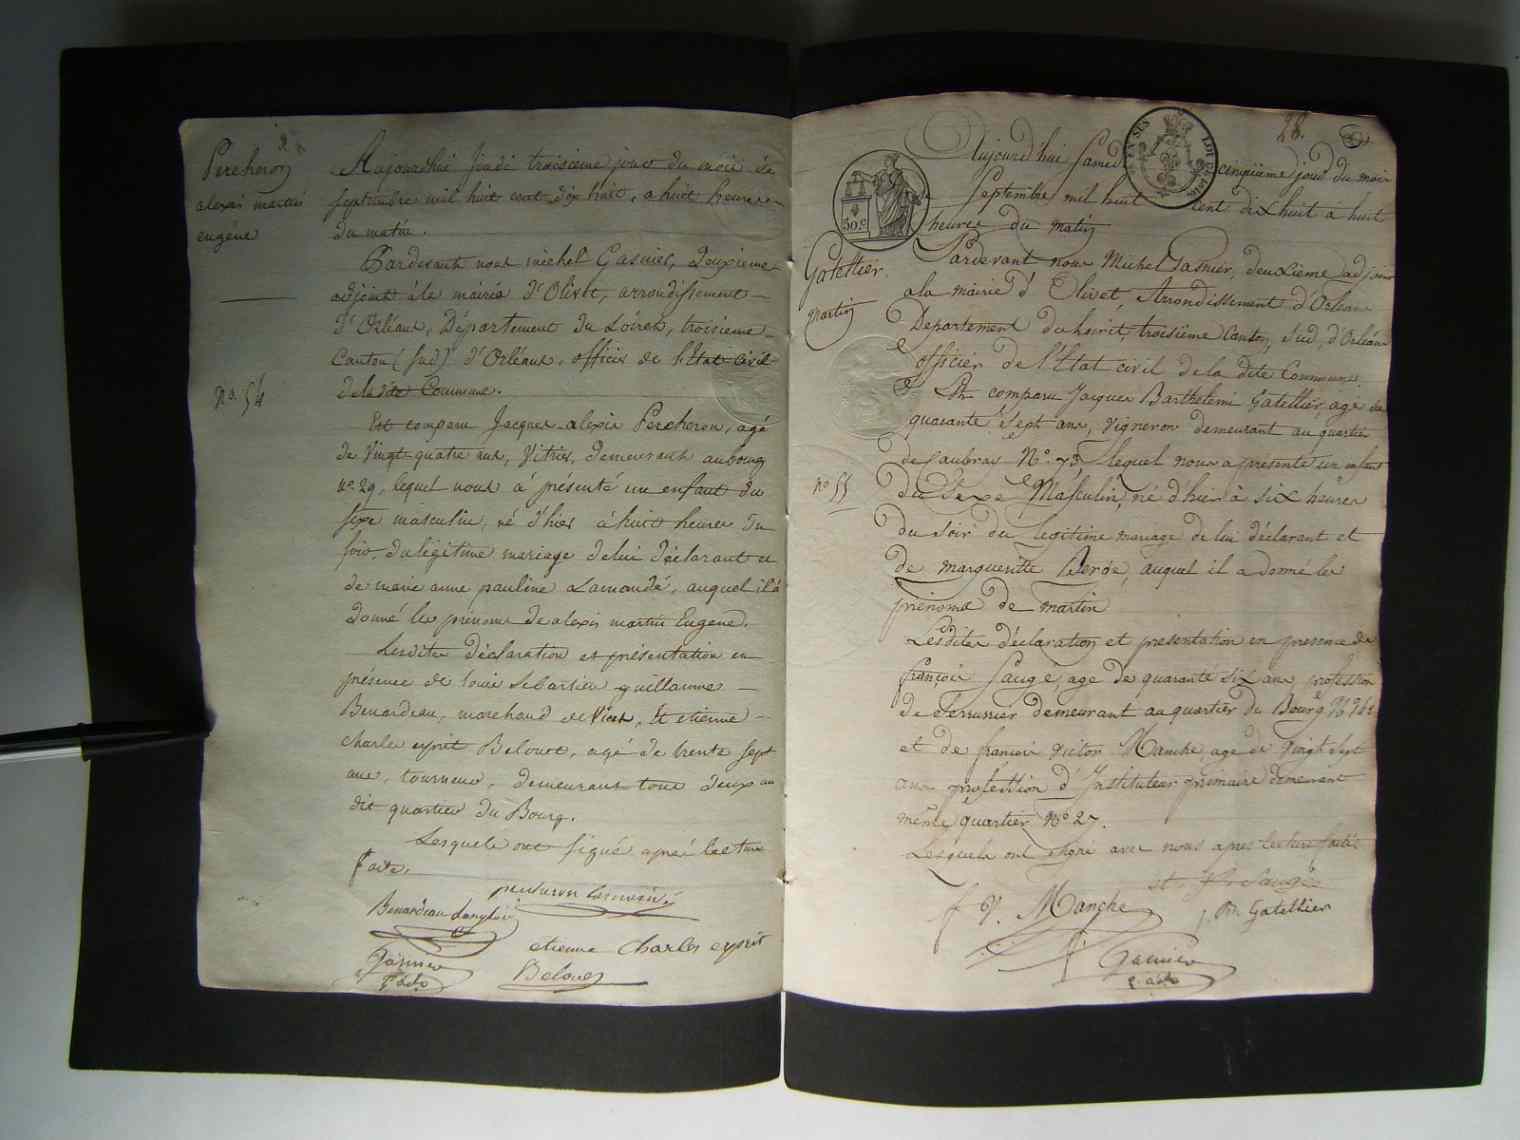 Percheron
alexis martin
eugéne
no. 54
Aujourdhui jeudi troisieme jour du mois de
septembre mil huit cent dix huit, a huit heures
du matin.
Pardevant nous michel Gasnier, deuxieme
adjoint à la mairie d'Olivet, arrondissement
d'Orléans, Département du Loiret, troisieme
Canton (sud) d'Orléans, officier de l'Etat civil
de la dte Commune.
Est comparu Jacques alexis Percheron, agé
de Vingt quatre ans, Vitrier, demeurant au bourg
no. 29, lequel nous á présenté un enfant du
sexe masculin, né d'hier à huit heures du
soir, du légitime mariage de lui déclarant et
de marie anne pauline Lamandé, auquel il á
donné les prénoms de alexis martin Eugene.
Lesdites déclaration et présentation en
présence de louis Sebastien guillaume
Benardeau, marchand de Vins, Et etienne
charles esprit Beloues, agé de trente sept
ans, tourneur, demeurant tous deux au
dit quartier du Bourg.
Lesquels ont signé aprés lecture
faite.
percheron Lamandé
Benardeau Langlois
etienne Charles esprit
Beloues
Gasnier
28.
EN SUS
LOI DE 1816
50 c
Gatellier.
martin
no 55
Aujourd'hui samedi cinquieme jour du mois
Septembre mil huit cent dix huit à huit
heures du matin
Pardevant nous Michel Gasnier, deuxieme adjoint
a la mairie d'Olivet, Arrondissement d'Orléans
Departement du Loiret, troisieme Canton, Sud, d'Orléans
officier de l'Etat civil de la dite Commune.
Est comparu Jacques Barthelemi Gatellier, agé de
quarante Sept ans, Vigneron demeurant au quartier
de Caubray No. 73 lequel nous a présenté un enfant
du Sexe Masculin, né d'hier à six heures
du Soir du legitime mariage de lui déclarant et
de margueritte auquel il a donné les
prénoms de martin
Lesdites déclaration et presentation en presence de
françois Saugé, age de quarante six ans, profession
de Serrurier demeurant au quartier du Bourg
et de françois victor Manche, age de vingt sept
ans profession d'Instituteur primaire demeurant
même quartier No 27.
Lesquels ont signé avec nous apres lecture faite
f. Saugé
f V. Manche
Gatellier
Gasnier